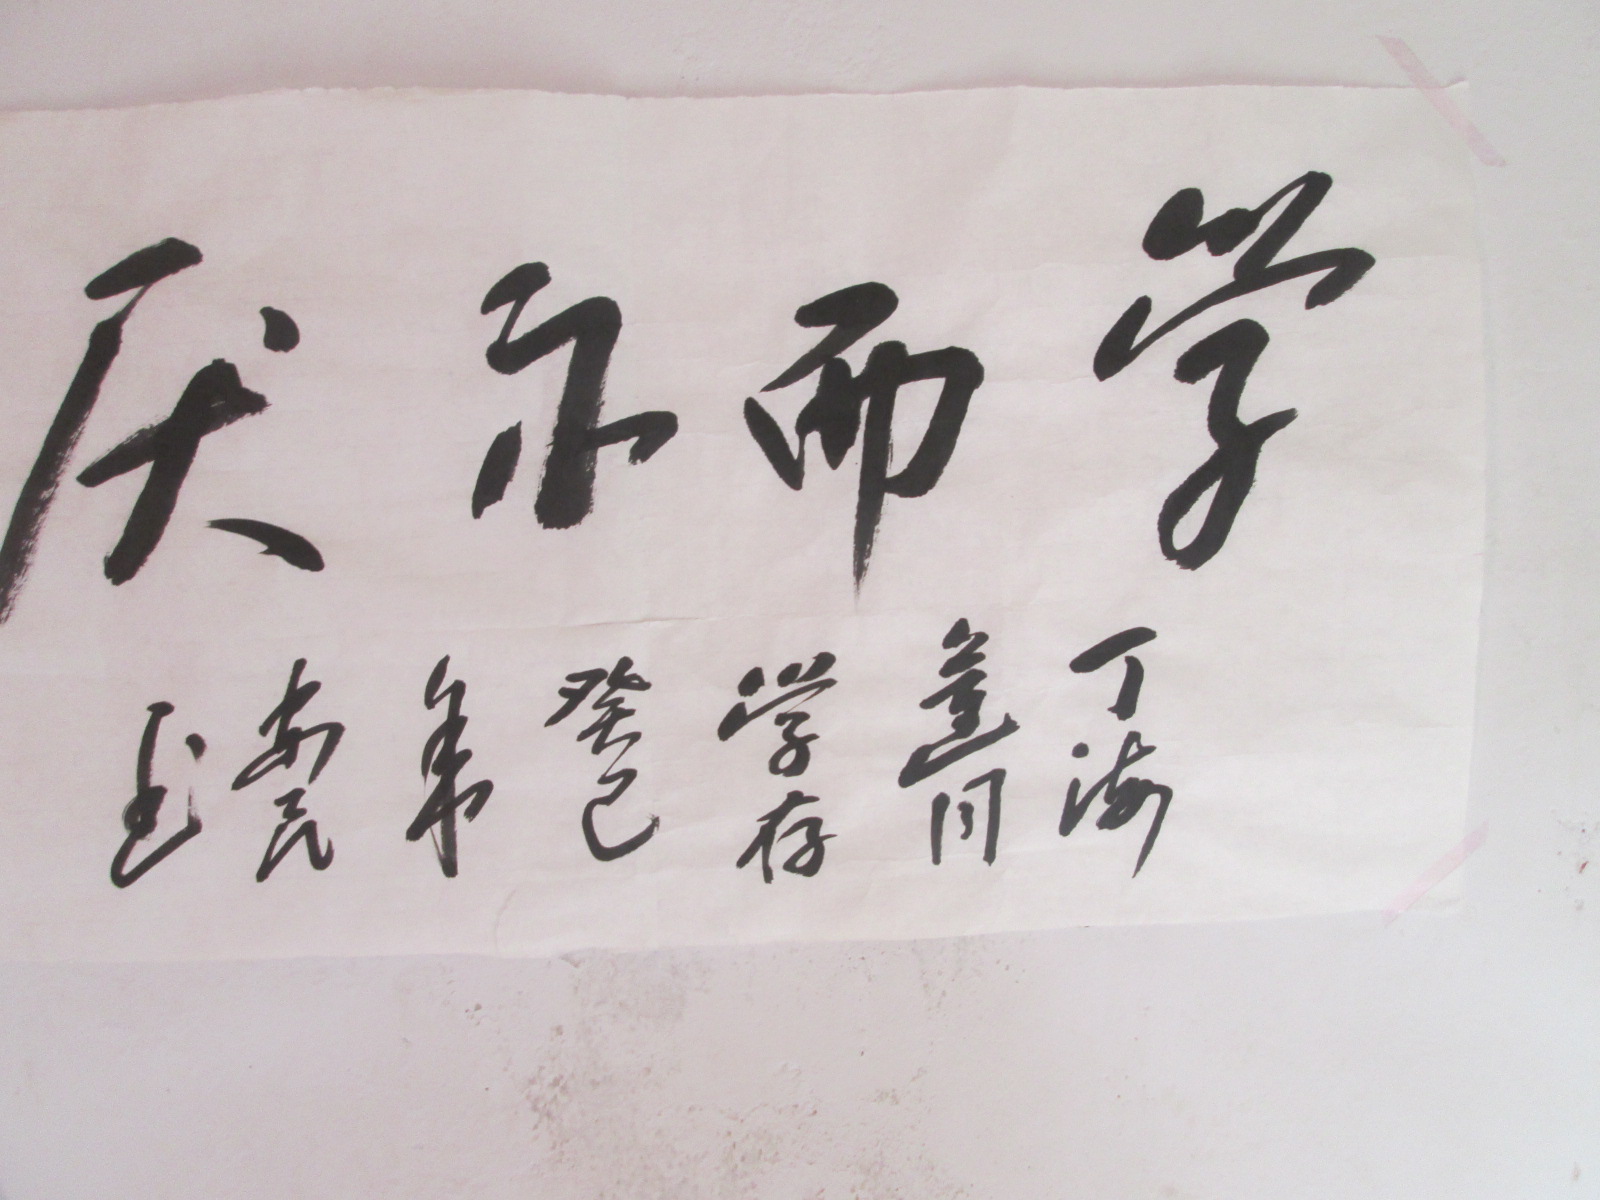 学而不厌
丁海
同学存
癸巳年
安民